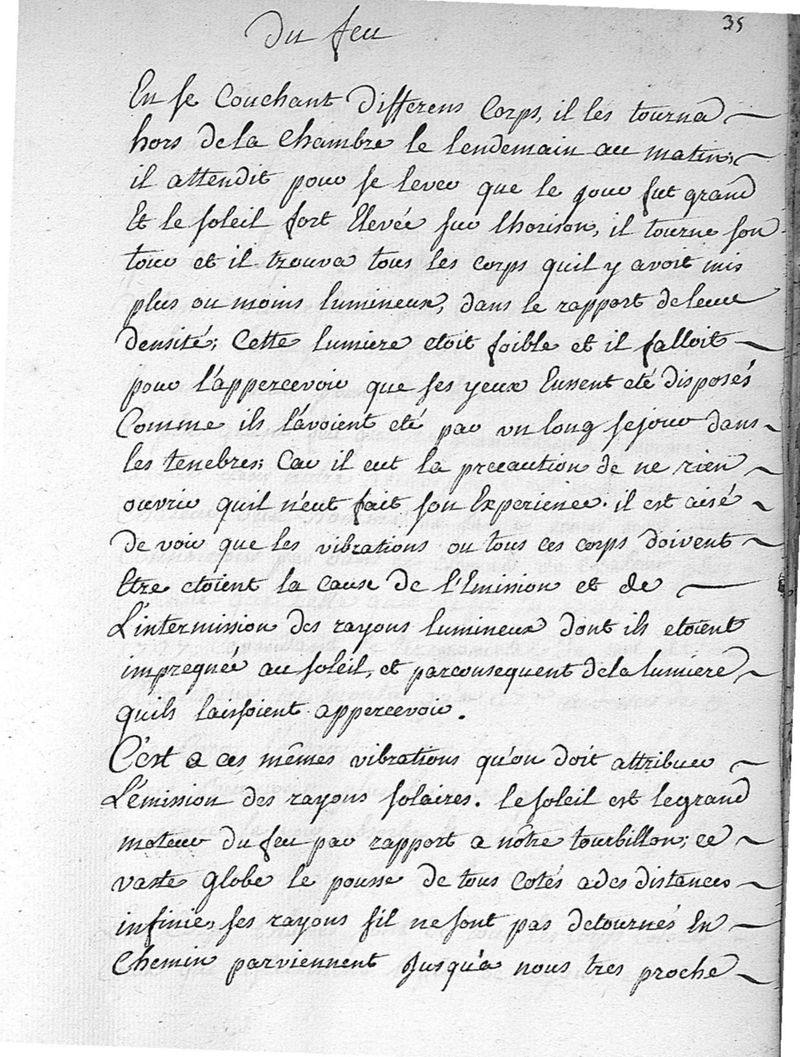 35
Du feu
En se Couchant Differens Corps, il les tourna
hors de la Chambre le lendemain au matin,
il attendit pour se lever que le jour fut grand
Et le soleil fort Elevée sur lhorison, il tourne son
tour et il trouva tous les corps quil y avoit mis
plus ou moins lumineux, dans le rapport de leur
densité; Cette lumiere etoit foible et il falloit
pour l'appercevoir que ses yeux Eussent eté disposés
Comme ils l'avoient eté par un long sejour dans
les tenebres; Car il eut la precaution de ne rien
ouvrir quil n'eut fait son Experience. il est aisé
de voir que les vibrations ou tous ces corps doivent
Etre etoient la cause de l'Emission et de
L'intermission des rayons lumineux dont ils etoient
impregnée au soleil, et parconsequent de la lumiere
quils laissoient appercevoir.
C'est a ces mêmes vibrations qu'on doit attribuer
L'émission des rayons solaires. le soleil est le grand
moteur du feu par rapport a nôtre tourbillon; ce
vaste globe le pousse de tous cotés a des distances
infinie, ses rayons sil ne sont pas detournés En
Chemin parviennent Jusqu'a nous tres proche